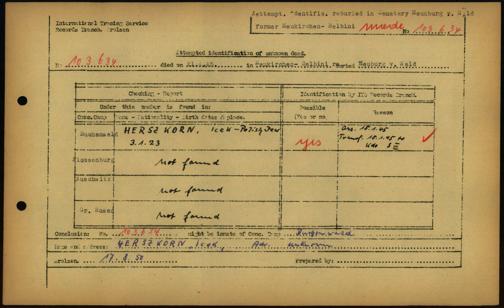 International Tracing Service
Records Branch. Arolsen
Attempt. Identific. reburied in Cemetary Neunburg v. Wald
former Neukirchen- Balbini
No 103.634
Attempted identification of unknown dead.
No 103634 died on 21.4.45. in Neukirchen- Balbini reburied Neuburg v. Wald
Checking - Report
Identification by ITS Records Branch.
Under this number is found in:
Possible
Reason
Conc.Camp Name - Nationality - Birth date & place.
(Yes or no)
Buchenwald HERSZKORN, Icek - Polish Jew
3.1.23
yes
Arr. 18.1.45
Transf. 18.1.45 to
Kdo S III
Flossenburg not found
Auschwitz not found
Gr. Rosen not found
Conclusion: No. 103.634 might be inmate of Conc. Camp Buchenwald
Name and Prename: HERSZKORN, Icek, Adr. unknown
Arolsen 17.8.50 Prepared by: